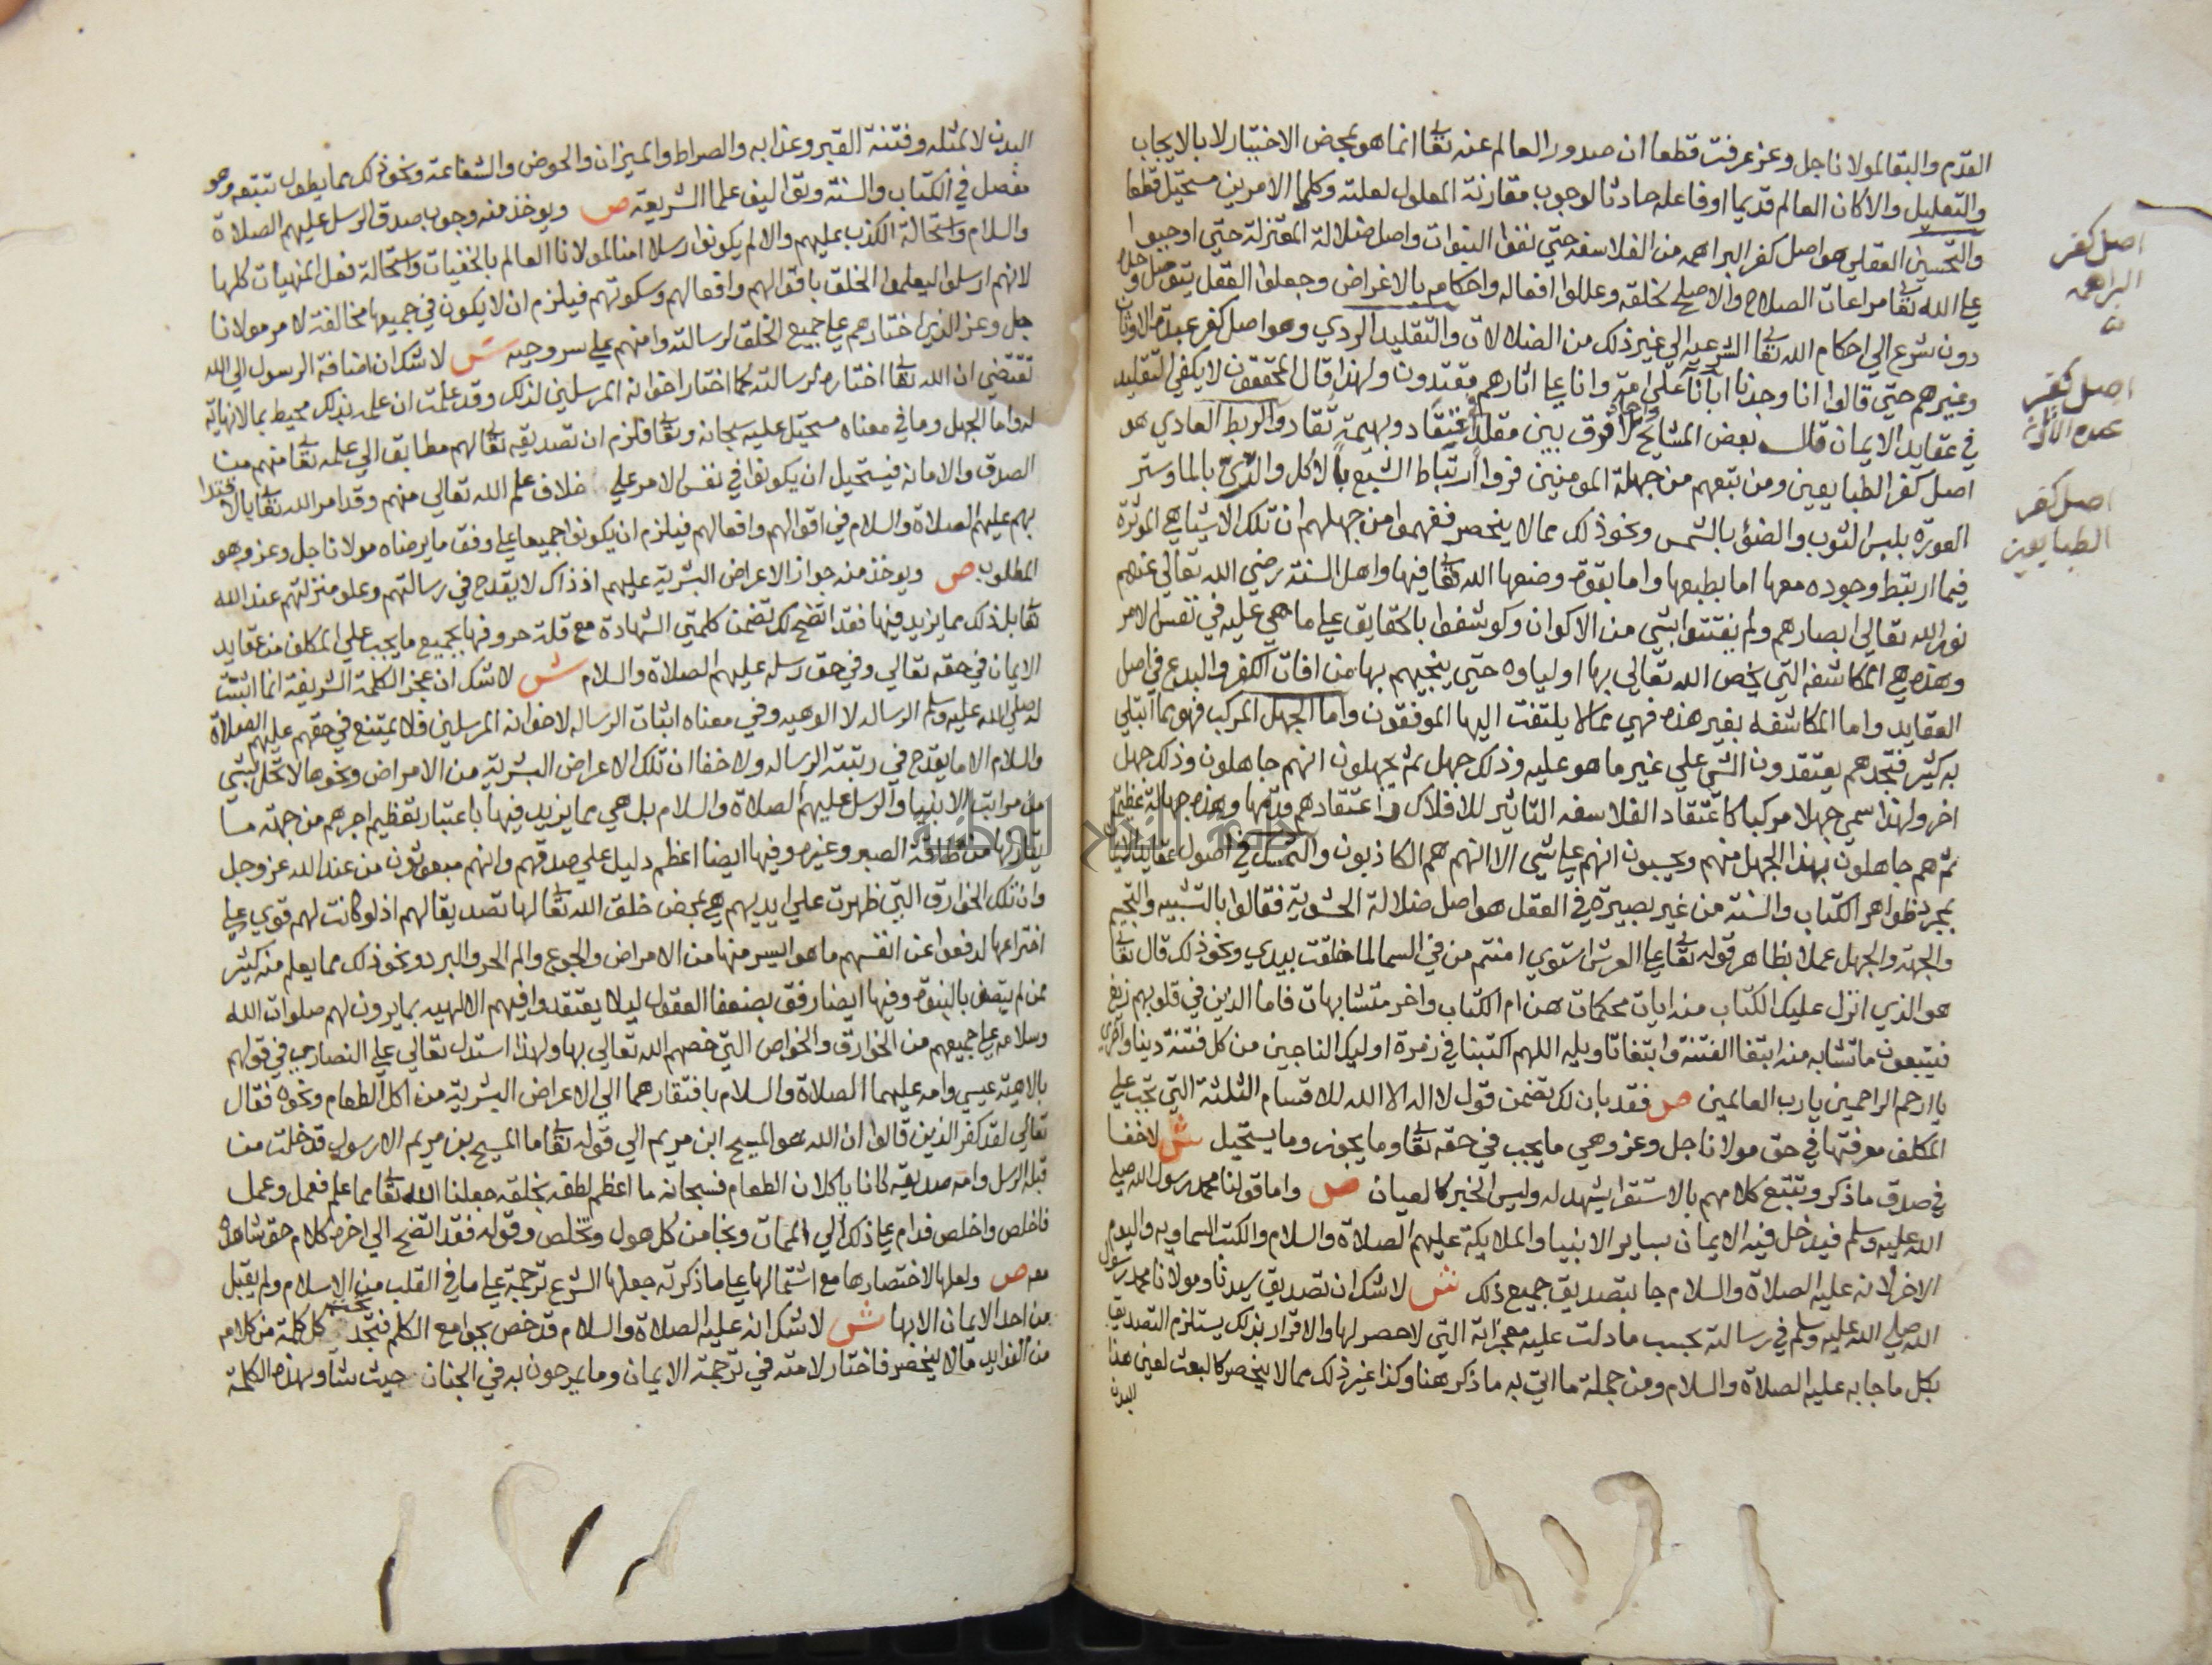 القدم والبقا لمولانا جل وعز عرفت قطعا ان صدور العالم عنه تعالى انما هو بمحض الاختيار لا بالايجاب
والتعليل والا كان العالم قديما او فاعله حادثا لوجوب مقارنة المعلول لعلته وكلا الامرين مستحيل قطعا
والتحسين العقلي هو اصل كفر البراهمه من الفلاسفه حتي نفوا النبوات واصل ضلالة المعتزلة حتي اوجبوا
علي الله تعالى مراعات الصلاح والاصلح لخلقه وعللوا افعاله واحكامه بالاغراض وجعلوا العقل يتوصل وحده
دون شرع الي احكام الله تعالى الشرعيه الي غير ذلك من الضلالات والتقليد الردي وهو اصل كفر عبدة الاوثان
وغيرهم حتي قالوا انا وجدنا ابآنا علي امة وانا علي اثارهم مقتدون ولهذا قال المحققون لا يكفي التقليد
في عقايد الايمان قال بعض المشايخ لا فرق بين مقلد ينقاد وبهيمة تقاد والربط العادي هو
اصل كفر الطبايعين ومن تبعهم من جهلة المومنين فروا ارتباط الشبع بالاكل والري بالما وستر
العورة بلبس الثوب والضوء بالشمس ونحو ذلك مما لا ينحصر ففهموا من جهلهم ان تلك الاشيا هي الموثرة
فيما ارتبط وجوده معها اما بطبعها واما بقوة وضعها الله تعالى فيها واهل السنة رضي الله تعالي عنهم
نور الله تعالي ابصارهم ولم يفتتنوا بشي من الاكوان وكوشفوا بالحقايق علي ما هي عليه في نفس الامر
وهذه هي المكاشفه التي يخص الله تعالي بها اولياوه حتي ينجيهم بها من افات الكفر والبدع في اصل
العقايد واما المكاشفه بغير هذه فهي مما لا يلتفت اليها الموفقون واما الجهل المركب فهو مما ابتلي
به كثير فتجدهم يعتقدون الشي علي غير ما هو عليه وذلك جهل ثم يجهلون انهم جاهلون وذلك جهل
اخر ولهذا سمي جهلا مركبا كاعتقاد الفلاسفه التاثير للافلاك واعتقادهم قدمها وهذه جهالة عظيمة
ثم هم جاهلون بهذا الجهل منهم ويحسبون انهم علي شي الا انهم هم الكاذبون والتمسك في اصول عقايد الايمان
بمجرد ظواهر الكتاب والسنة من غير بصيرة في العقل هو اصل ضلالة الحشوية فقالوا بالتشبيه والتجسيم
والجهة والجهل عملا بظاهر قوله تعالى علي العرش استوي امنتم من في السما لما خلقت بيدي ونحو ذلك قال تعالى
هو الذي انزل عليك الكتاب منه ايات محكمات هن ام الكتاب واخر متشابهات فاما الذين في قلوبهم زيغ
فيتبعون ما تشابه منه ابتغا الفتنة وابتغا تاويله اللهم اكتبنا في زمرة اوليك الناجين من كل فتنة دينا واخري
يا ارحم الراحمين يا رب العالمين ص فقد بان لك تضمن قول لا اله الا الله للاقسام الثلثة التي تجب علي
المكلف معرفتها في حق مولانا جل وعز وهي ما يجب في حقه تعالى وما يجوز وما يستحيل ش لا خفا
في صدق ما ذكر وتتبع كلامهم بالاستقرا يشهد له وليس الخبر كالعيان ص واما قولنا محمد رسول الله صلي
الله عليه وسلم فيدخل فيه الايمان بساير الانبيا والملايكة عليهم الصلاة والسلام والكتب السماويه واليوم
الاخر لانه عليه الصلاة والسلام جا بتصديق جميع ذلك ش لا شك ان تصديق سيدنا ومولانا محمد رسول
الله صلي الله عليه وسلم في رسالته بحسب ما دلت عليه معجزاته التي لا حصر لها والاقرار بذلك يستلزم التصديق
بكل ما جا به عليه الصلاة والسلام ومن جملة ما اتي به ما ذكر هنا وكذا غير ذلك مما لا ينحصر كالبعث لعين هذا
البدن
اصل كفر
البراهمه
اصل كفر
عبدة الاوثان
اصل كفر
الطبايعين
البدن لا لمثله وفتنة القبر وعذابه والصراط والميزان والحوض والشفاعة ونحو ذلك مما يطول تتبعه وهو
مفصل في الكتاب والسنة وتواليف علما الشريعة ص ويوخذ منه وجوب صدق الرسل عليهم الصلاة
والسلام واستحالة الكذب عليهم والا لم يكونوا رسلا امنا لمولانا العالم بالخفيات واستحالة فعل المنهيات كلها
لانهم ارسلوا ليعلموا الخلق باقوالهم وافعالهم وسكوتهم فيلزم ان لا يكون في جميعها مخالفة لامر مولانا
جل وعز الذي اختارهم علي جميع الخلق لرسالته وامنهم علي سر وحيه ش لا شك ان اضافة الرسول الي الله
تقتضي ان الله تعالى اختاره لرسالته كما اختار اخوانه المرسلين لذلك وقد علمت ان علمه بذلك محيط بما لا نهاية
له واما الجهل وما في معناه مستحيل عليه سبحانه وتعالى فلزم ان تصديقه تعالى لهم مطابق الي علمه تعالى منهم من
الصدق والامانة فيستحيل ان يكونوا في نفس الامر علي خلاف علم الله تعالي منهم وقد امر الله تعالى بالاقتدا
بهم عليهم الصلاة والسلام في اقوالهم وافعالهم فيلزم ان يكونوا جميعا علي وفق ما يرضاه مولانا جل وعز وهو
المطلوب ص ويوخذ منه جواز الاعراض البشرية عليهم اذ ذاك لا يقدح في رسالتهم وعلو منزلتهم عند الله
تعالى بل ذلك مما يزيد فيها فقد اتضح لك تضمن كلمتي الشهادة مع قلة حروفها بجميع ما يجب علي المكلف من عقايد
الايمان في حقه تعالي وفي حق رسله عليهم الصلاة والسلام ش لا شك ان عجز الكلمة الشريفة انما اثبتت
له صلي الله عليه وسلم الرسالة لا الوهيه وفي معناه اثبات الرسالة لاخوانه المرسلين فلا يمتنع في حقهم عليهم الصلاة
والسلام الا ما يقدح في رتبة الرسالة ولا خفا ان تلك الاعراض البشرية من الامراض ونحوها لا تخل بشي
من مراتب الانبيا والرسل عليهم الصلاة والسلام بل هي مما يزيد فيها باعتبار تعظيم اجرهم من جهة ما
يقارنها من طاعة الصبر وغيره وفيها ايضا اعظم دليل علي صدقهم وانهم مبعوثون من عند الله عز وجل
وان تلك الخوارق التي ظهرت علي ايديهم هي بمحض خلق الله تعالى لها تصديقا لهم اذ لو كانت لهم قوي علي
اختراعها لدفعوا عن انفسهم ما هو ايسر منها من الامراض والجوع والم الحر والبرد ونحو ذلك مما يعلم منه كثير
ممن لم يتصف بالنبوة وفيها ايضا رفق بضعفا العقول ليلا يعتقدوا فيهم الالهيه بما يرون لهم صلوات الله
وسلامه علي جميعهم من الخوارق والخواص التي خصهم الله تعالي بها ولهذا استدل تعالي علي النصاري في قولهم
بالاهية عيسي وامه عليهما الصلاة والسلام بافتقارهما الي الاعراض البشرية من اكل الطعام ونحوه فقال
تعالي لقد كفر الذين قالوا ان الله هو المسيح ابن مريم الي قوله تعالى ما المسيح بن مريم الا رسول قد خلت من
قبله الرسل وامه صديقه كانا ياكلان الطعام فسبحانه ما اعظم لطفه بخلقه جعلنا الله تعالى مما علم فعمل وعمل
فاخلص واخلص فدام علي ذلك الي الممات ونجا من كل هول وتخلص وقوله فقد اتضح الي اخره كلام حق شاهده
معه ص ولعلها لاختصارها مع اشتمالها علي ما ذكرته جعلها الشرع ترجمة علي ما في القلب من الاسلام ولم يقبل
من احد الايمان الا بها ش لا شك انه عليه الصلاة والسلام قد خص بجوامع الكلم فتجد تحت كل كلمة من كلامه
من الفوايد ما لا ينحصر فاختار لامته في ترجمة الايمان وما يرحون به في الجنان حيث شآو بهذه الكلمة